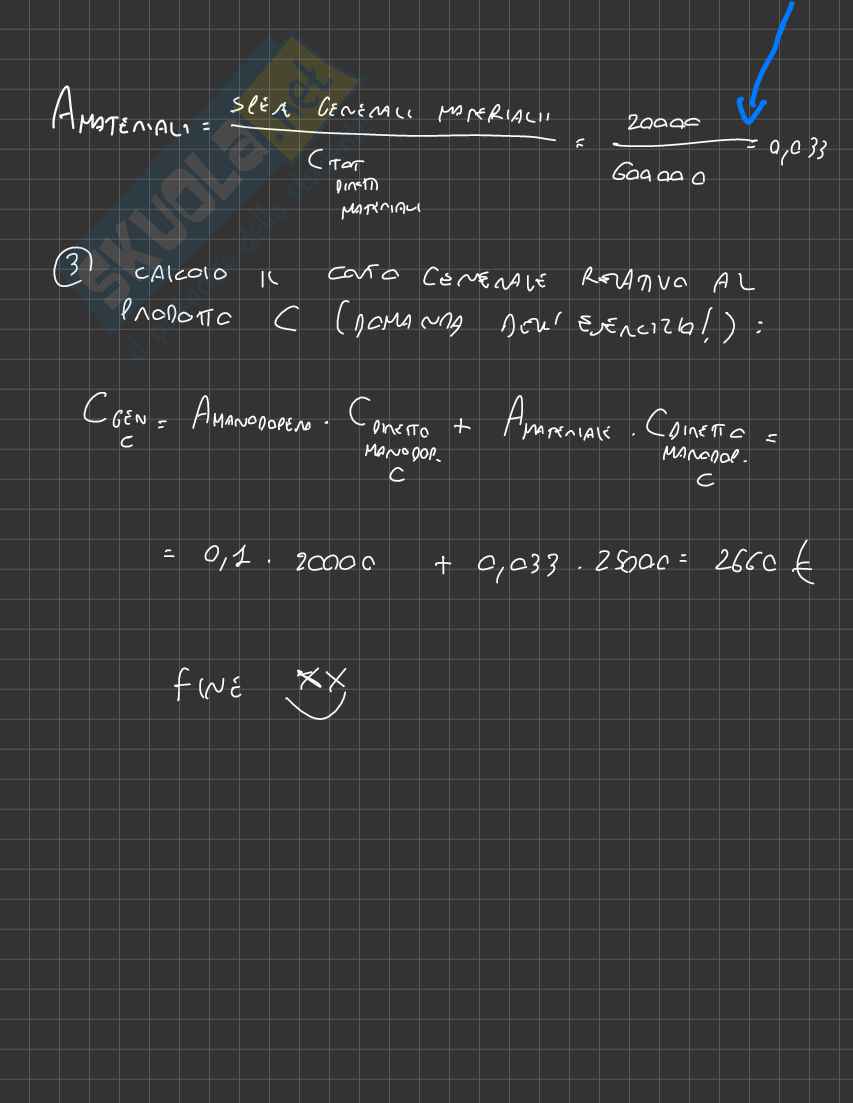 A MATERIALI = SPESE GENERALI MATERIALI / C TOT DIRETTI MATERIALI = 20000 / 600000 = 0,033
③ CALCOLO IL COSTO GENERALE RELATIVO AL
PRODOTTO C (DOMANDA DELL'ESERCIZIO!) :
C GEN C = A MANODOPERA · C DIRETTO MANODOP. C + A MATERIALE · C DIRETTO MANODOP. C =
= 0,1 · 20000 + 0,033 · 25000 = 2660 €
FINE XX
SKUOLA.net